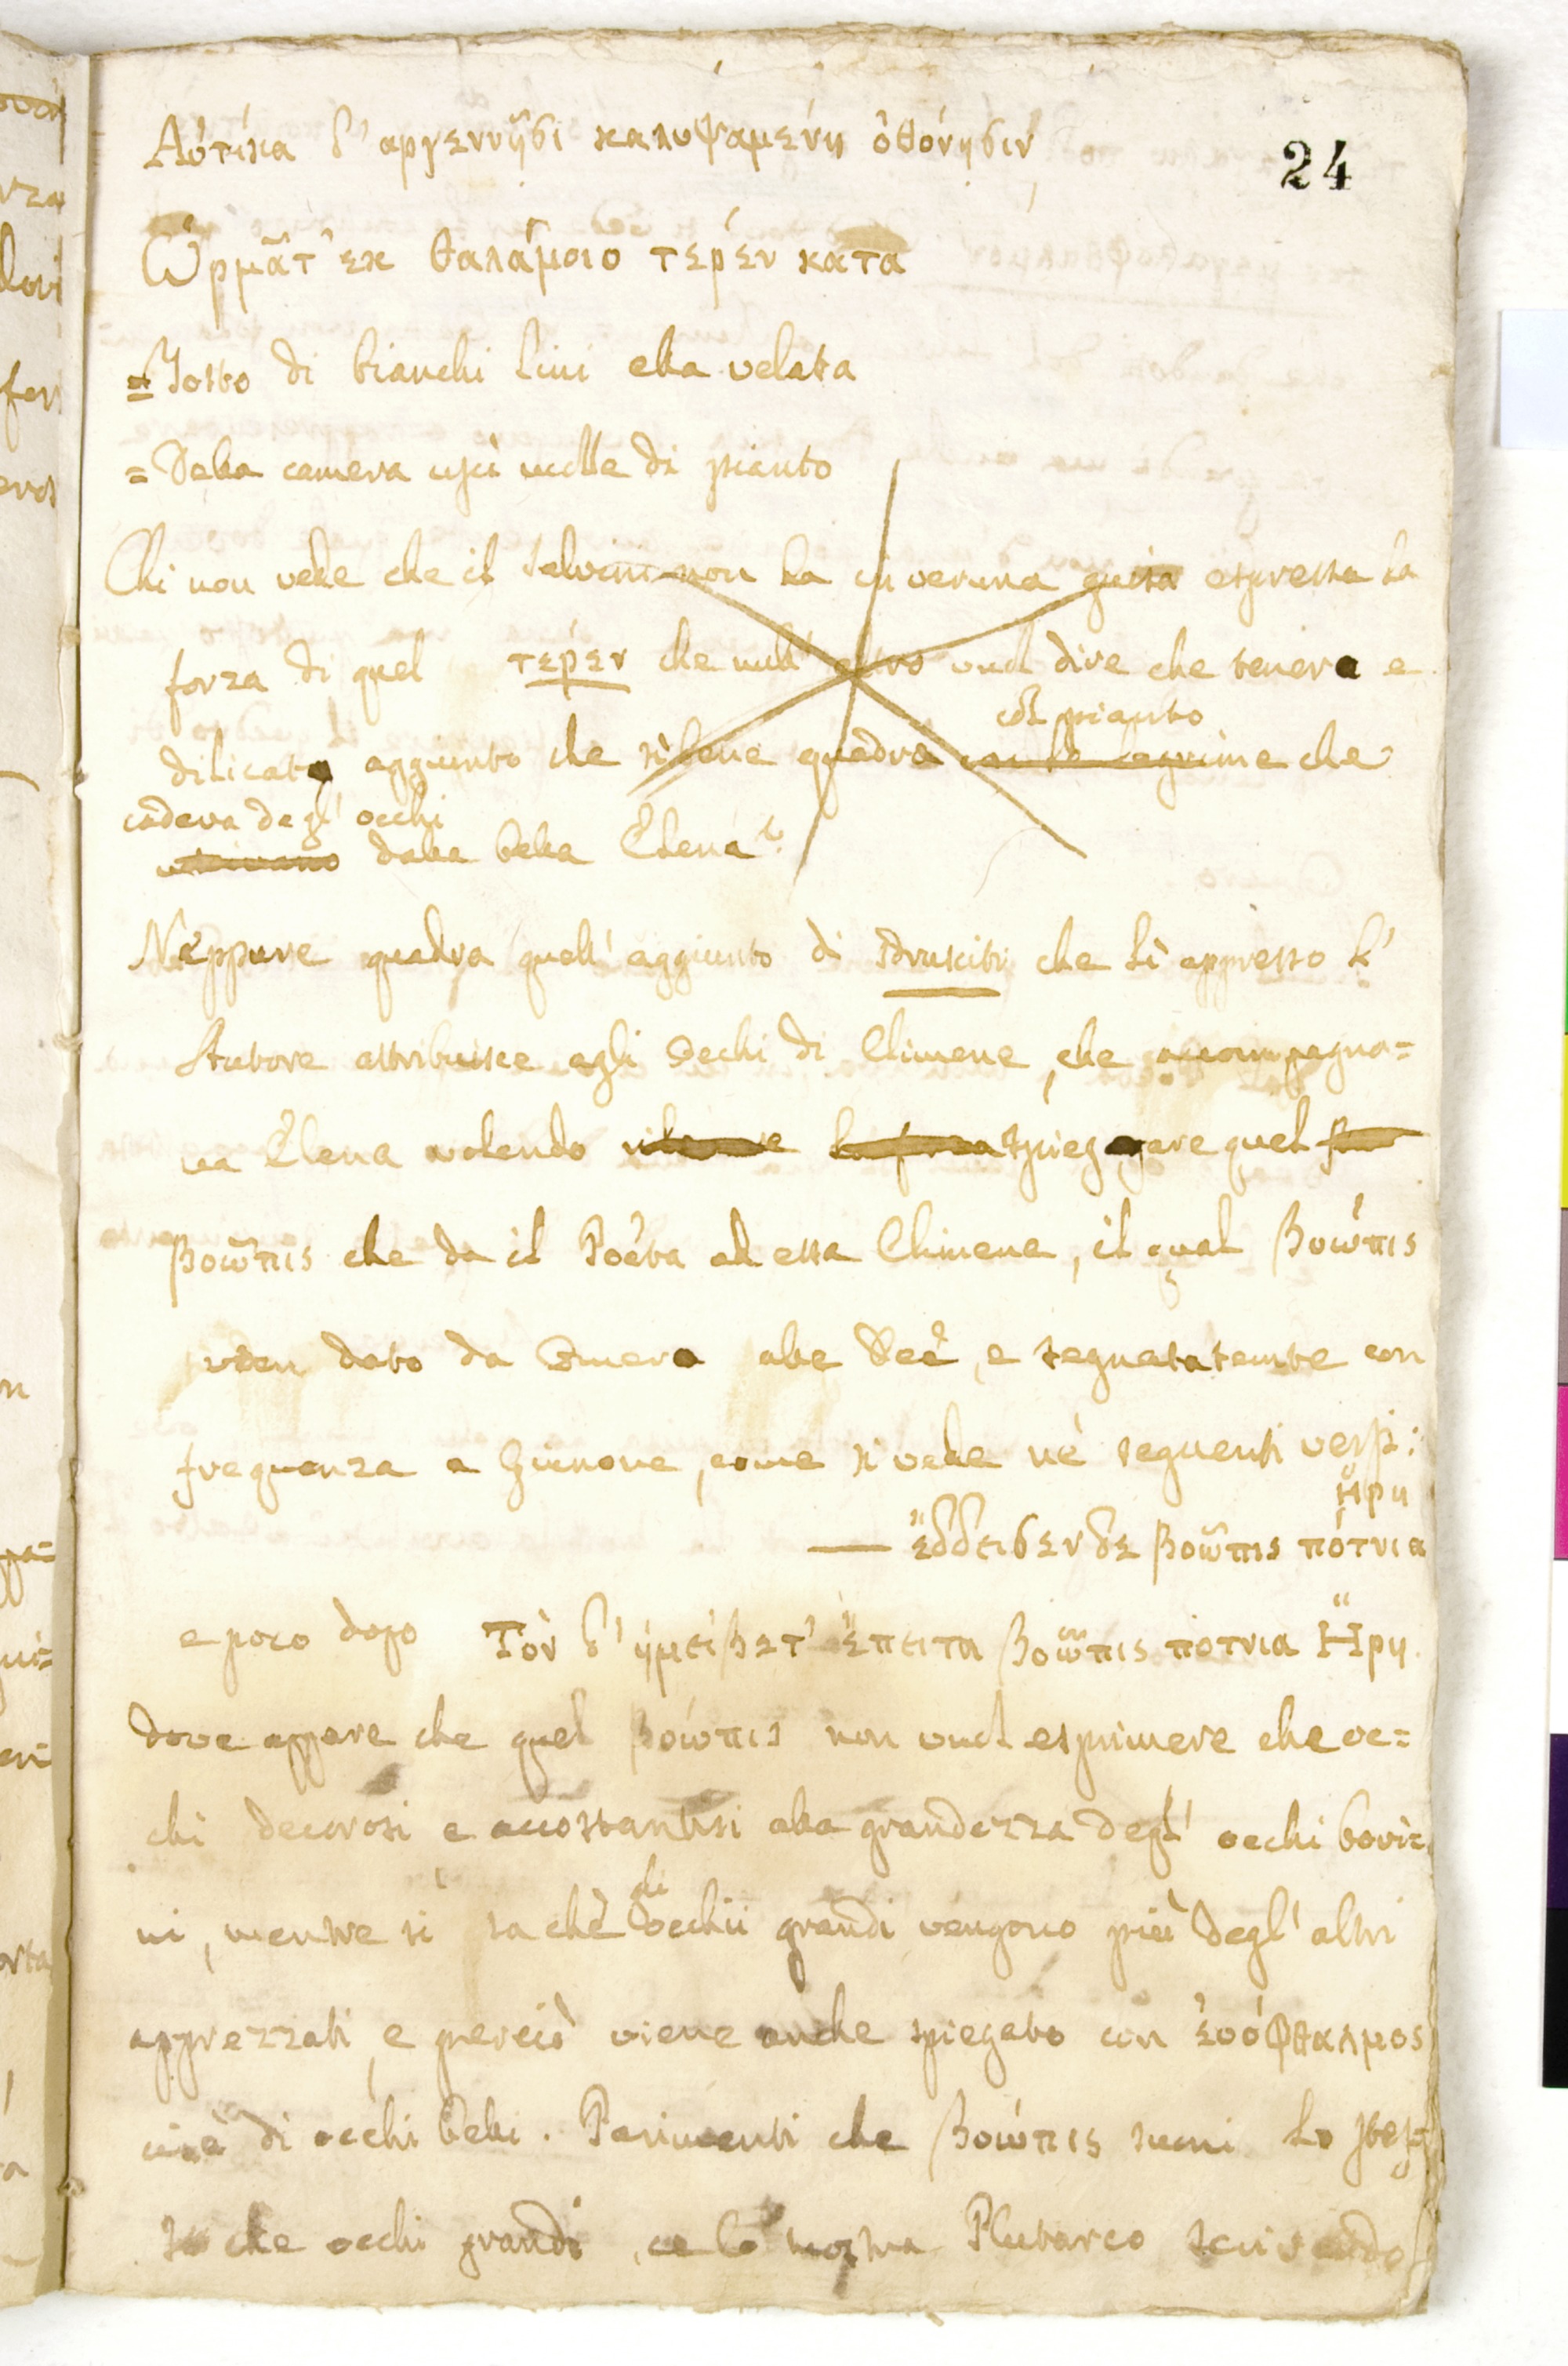 24
Αὐτίκα δ' αργεννῇσι καλυψαμένη ὀθόνῃσιν,
Ὡρμᾶτ' εκ θαλάμοιο τέρεν κατα
= Tosto di bianchi lini ella velata
= Della camera uscì molle di pianto
Chi non vede che il Salvini non ha in veruna guisa espressa la
forza di quel τέρεν che null' altro vuol dire che tenero e
col pianto
dilicato aggiunto che sì bene quadra con le lagrime che
cadeva degl' occhi
uscivano dalla bella Elena?
Neppure quadra quell' aggiunto di sdrusciti che lì appresso l'
Autore attribuisce agli Occhi di Climene, che accompagna=
va Elena volendo la forza spiegare quel
βοῶπις che da il Poéta ad essa Climene, il qual βοώπις
vien dato da Omero alle Deè, e segnatatemte con
frequenza a Giunone, come si vede nè seguenti versi:
Ἥρη
— ἔδδεισεν δε βοῶπις πότνια
e poco dopo Τὸν δ' ἠμείβετ' ἔπειτα βοῶπις ποτνια Ἥρη.
dove appare che quel βοώπις non vuol esprimere che oc=
chi decorosi e accostantisi alla grandezza degl' occhi bovi=
gli
ni, mentre si sa chè occhii grandi vengono più degl' altri
apprezzati, e perciò viene anche spiegato con ἐυόφθαλμος
cioè di occhi belli. Parimenti che βοώπις suoni lo stes=
so che occhi grandi, ce lo mostra Plutarco scrivendo